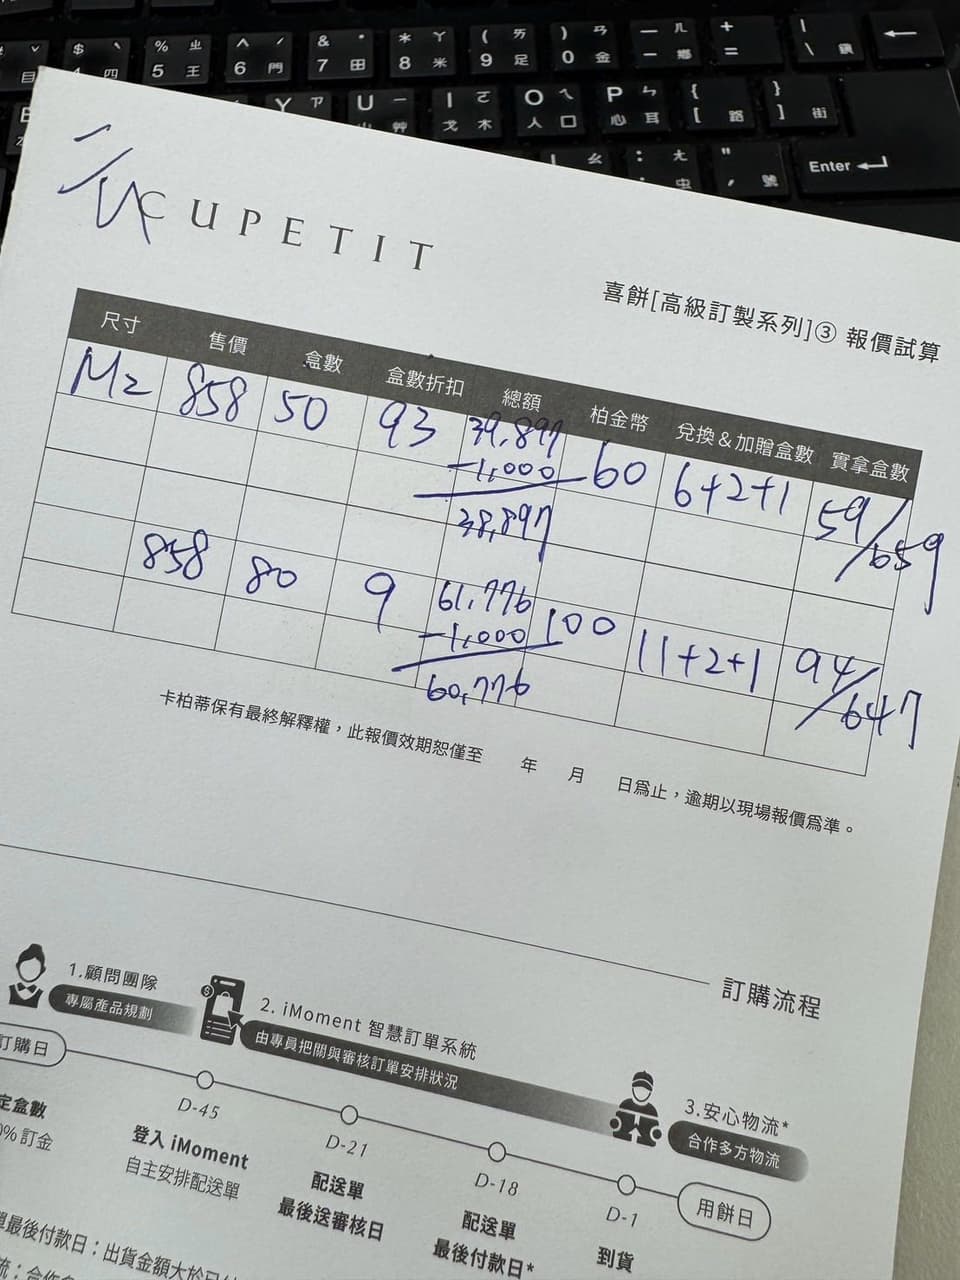 目 ˇ $ ˋ 4 四 % ㄓ 5 王 ^ ˊ 6 門 & ˙ 7 田 * ㄚ 8 米 ( ㄞ 9 足 ) ㄢ 0 金 — ㄦ - + = | \
Y ㄗ U ㄧ 山 I ㄛ 戈 木 O ㄟ 人 口 P ㄣ 心 耳 { [ 路 } ] 街
L ㄠ : ㄤ ; 虫 " ' 號 Enter
CUPETIT
喜餅[高級訂製系列]③ 報價試算
尺寸 售價 盒數 盒數折扣 總額 柏金幣 兌換&加贈盒數 實拿盒數
M2 858 50 93 39,897 60 6+2+1 59/659
-1,000
38,897
858 80 9 61,776 100 11+2+1 94/647
-1,000
60,776
卡柏蒂保有最終解釋權,此報價效期恕僅至 年 月 日為止,逾期以現場報價為準。
訂購流程
1.顧問團隊
專屬產品規劃
2. iMoment 智慧訂單系統
由專員把關與審核訂單安排狀況
3.安心物流*
合作多方物流
訂購日
定盒數
0% 訂金
D-45
登入 iMoment
自主安排配送單
D-21
配送單
最後送審核日
D-18
配送單
最後付款日*
D-1
到貨
用餅日
單最後付款日:出貨金額大於已
流:合作